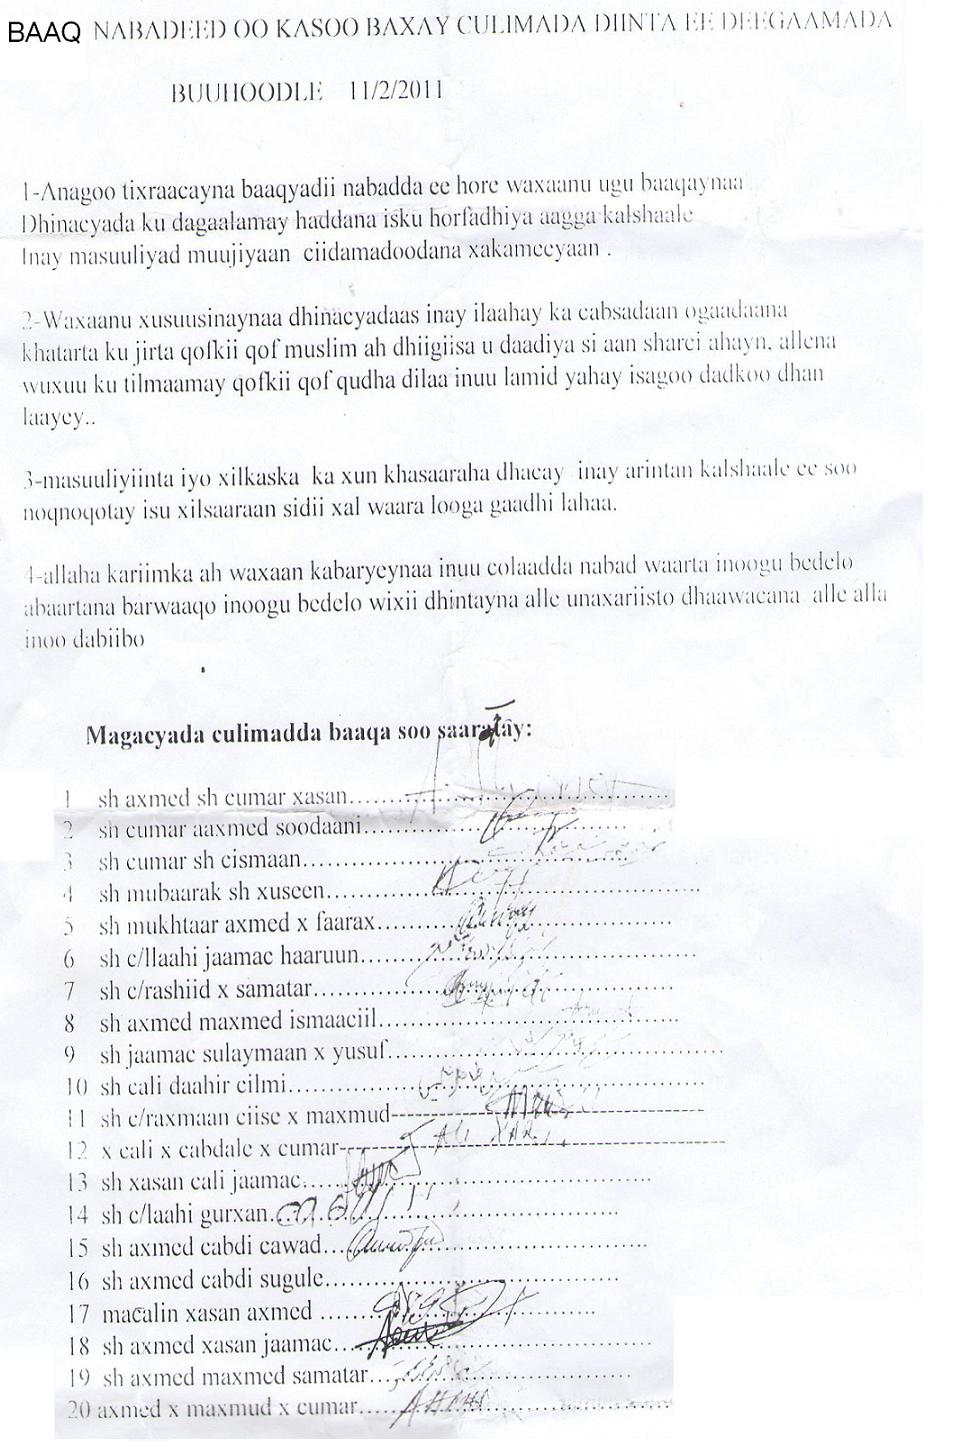 BAAQ NABADEED OO KASOO BAXAY CULIMADA DIINTA EE DEEGAAMADA
BUUHOODLE 11/2/2011
1-Anagoo tixraacayna baaqyadii nabadda ee hore waxaanu ugu baaqaynaa
Dhinacyada ku dagaalamay haddana isku horfadhiya aagga kalshaale
Inay masuuliyad muujiyaan ciidamadoodana xakameeyaan .
2-Waxaanu xusuusinaynaa dhinacyadaas inay ilaahay ka cabsadaan ogaadaana
khatarta ku jirta qofkii qof muslim ah dhiigiisa u daadiya si aan sharci ahayn, allena
wuxuu ku tilmaamay qofkii qof qudha dilaa inuu lamid yahay isagoo dadkoo dhan
laayey..
3-masuuliyiinta iyo xilkaska ka xun khasaaraha dhacay inay arintan kalshaale ee soo
noqnoqotay isu xilsaaraan sidii xal waara looga gaadhi lahaa.
4-allaha kariimka ah waxaan kabaryeynaa inuu colaadda nabad waarta inoogu bedelo
abaartana barwaaqo inoogu bedelo wixii dhintayna alle unaxariisto dhaawacana alle alla
inoo dabiibo
Magacyada culimadda baaqa soo saaratay:
1 sh axmed sh cumar xasan
2 sh cumar aaxmed soodaani
3 sh cumar sh cismaan
4 sh mubaarak sh xuseen
5 sh mukhtaar axmed x faarax
6 sh c/llaahi jaamac haaruun
7 sh c/rashiid x samatar
8 sh axmed maxmed ismaaciil
9 sh jaamac sulaymaan x yusuf
10 sh cali daahir cilmi
11 sh c/raxmaan ciise x maxmud
12 x cali x cabdale x cumar
13 sh xasan cali jaamac
14 sh c/laahi gurxan
15 sh axmed cabdi cawad
16 sh axmed cabdi sugule
17 macalin xasan axmed
18 sh axmed xasan jaamac
19 sh axmed maxmed samatar
20 axmed x maxmud x cumar